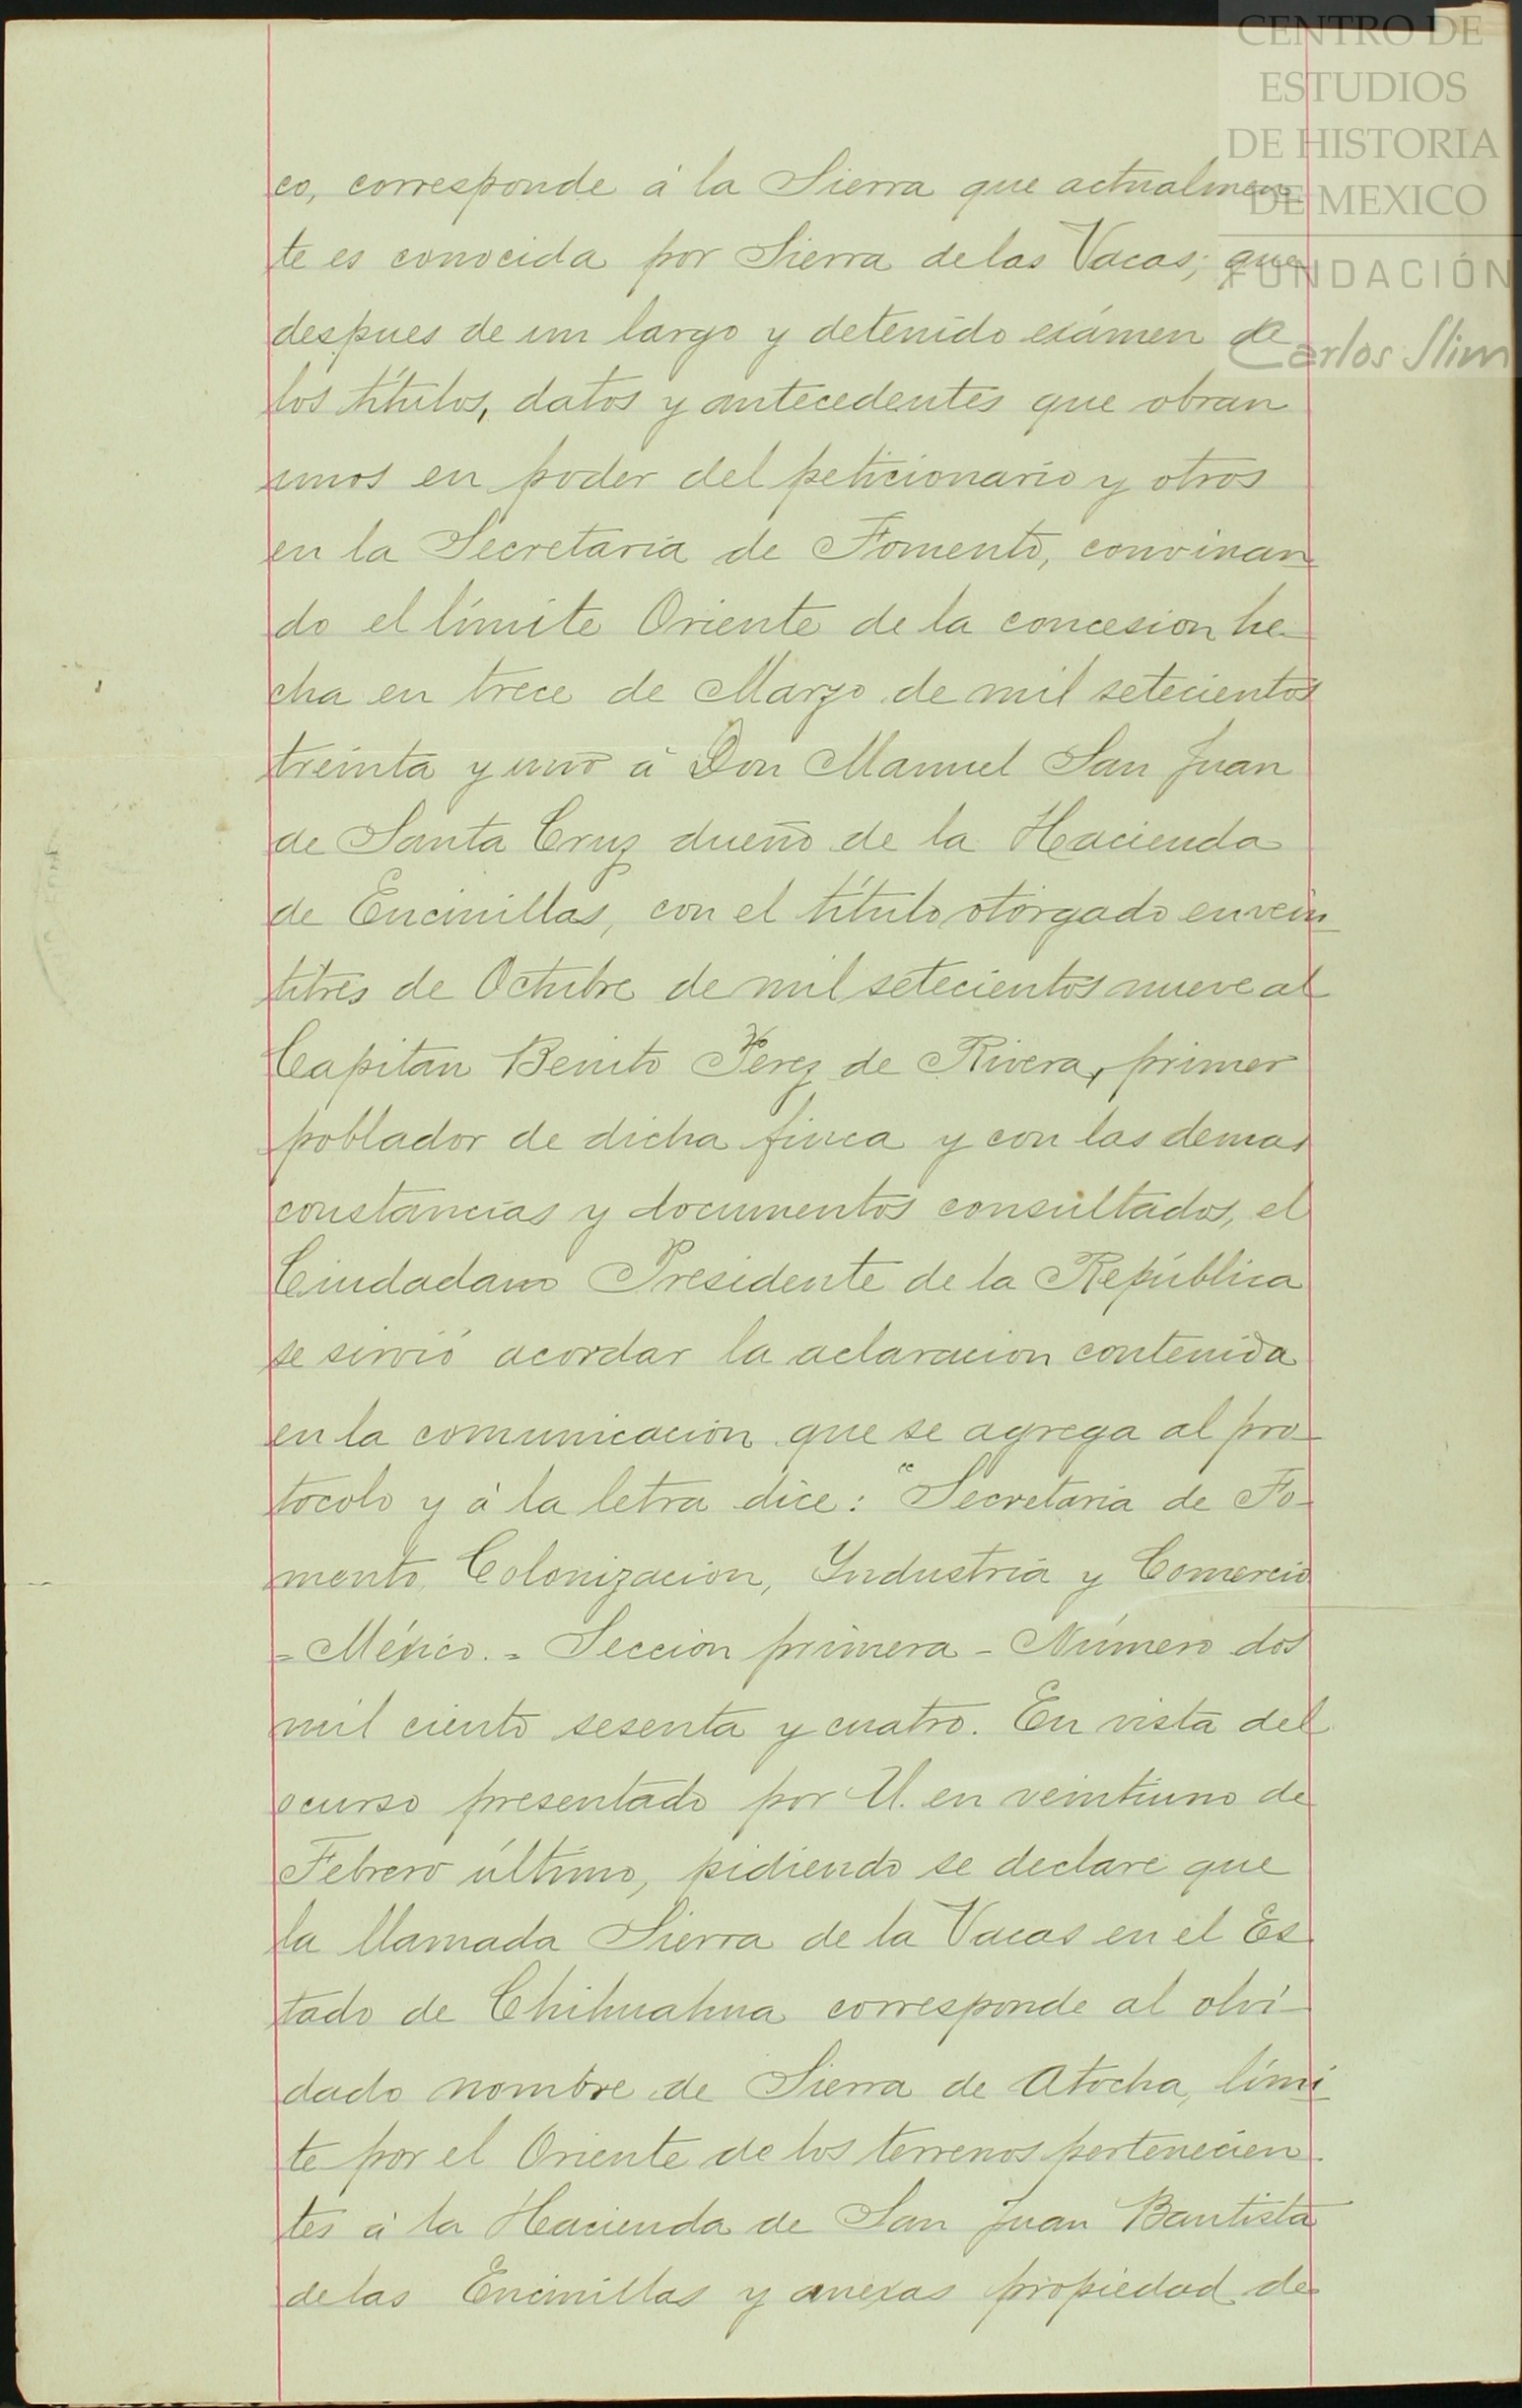 CENTRO DE
ESTUDIOS
DE HISTORIA
DE MEXICO
FUNDACIÓN
Carlos Slim
co, corresponde á la Sierra que actualmen
te es conocida por Sierra de las Vacas; que
despues de un largo y detenido exámen de
los títulos, datos y antecedentes que obran
unos en poder del peticionario y otros
en la Secretaría de Fomento, convinan
do el límite Oriente de la concesion he-
cha en trece de Marzo de mil setecientos
treinta y uno á Don Manuel San Juan
de Santa Cruz dueño de la Hacienda
de Encinillas, con el título otorgado en vein
titres de Octubre de mil setecientos nueve al
Capitan Benito Perez de Rivera, primer
poblador de dicha finca y con las demas
constancias y documentos consultados, el
Ciudadano Presidente de la República
se sirvió acordar la aclaracion contenida
en la comunicacion que se agrega al pro-
tocolo y á la letra dice: "Secretaría de Fo-
mento, Colonizacion, Industria y Comercio
= México. = Seccion primera - Número dos
mil ciento sesenta y cuatro. En vista del
ocurso presentado por U. en veintiuno de
Febrero último, pidiendo se declare que
la llamada Sierra de la Vacas en el Es
tado de Chihuahua corresponde al olvi-
dado nombre de Sierra de Atocha, lími
te por el Oriente de los terrenos pertenecien
tes á la Hacienda de San Juan Bautista
de las Encinillas y anexas propiedad de